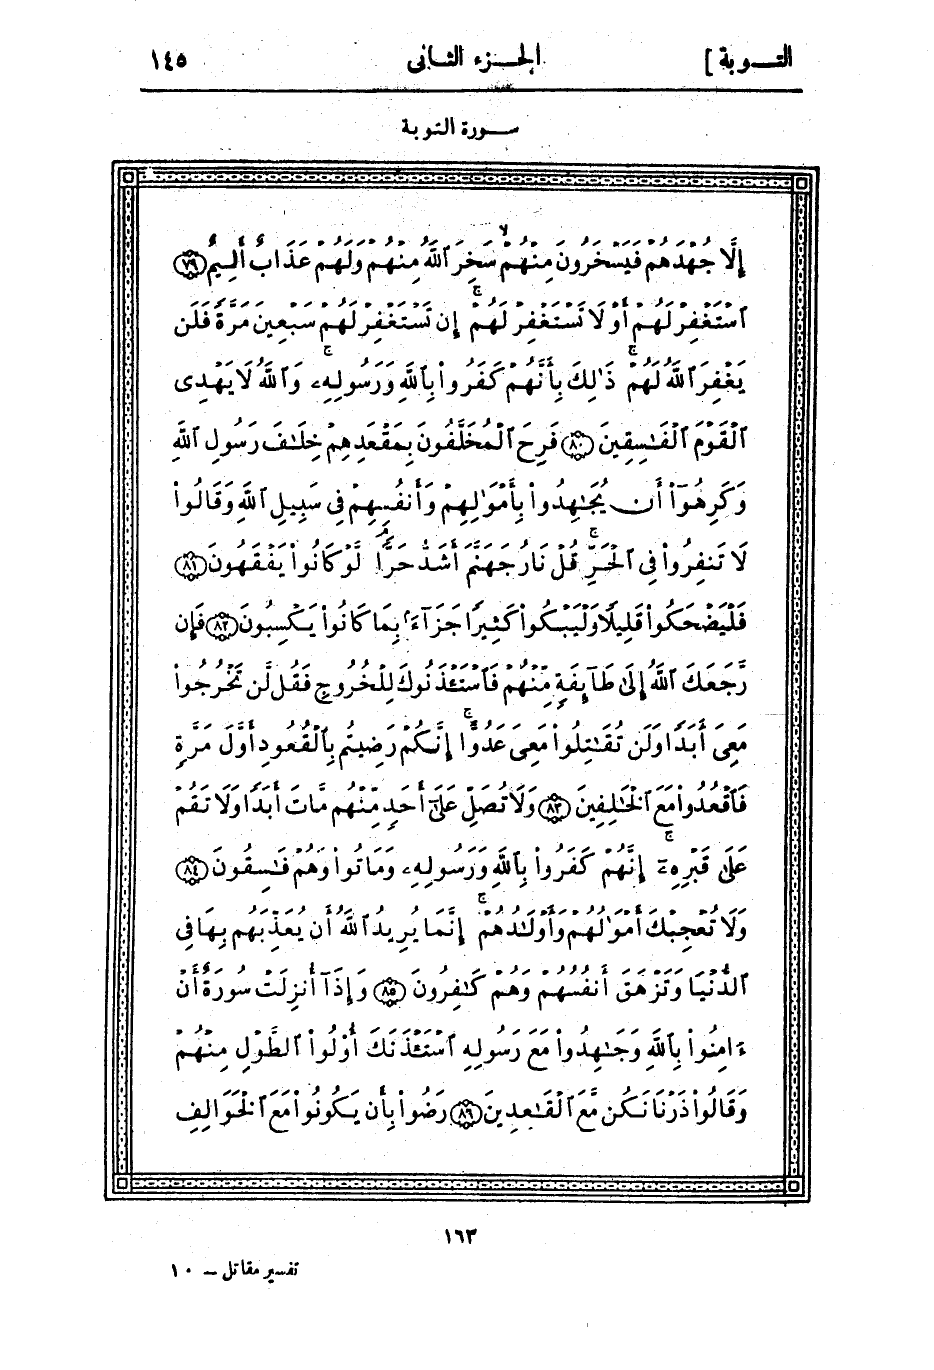 التــوبة ] الجــزء الثانى ١٤٥
ســورة التوبة
إِلَّا جُهْدَهُمْ فَيَسْخَرُونَ مِنْهُمْ ۙ سَخِرَ ٱللَّهُ مِنْهُمْ وَلَهُمْ عَذَابٌ أَلِيمٌ ٧٩
ٱسْتَغْفِرْ لَهُمْ أَوْ لَا تَسْتَغْفِرْ لَهُمْ ۚ إِن تَسْتَغْفِرْ لَهُمْ سَبْعِينَ مَرَّةً فَلَن
يَغْفِرَ ٱللَّهُ لَهُمْ ۚ ذَٰلِكَ بِأَنَّهُمْ كَفَرُوا۟ بِٱللَّهِ وَرَسُولِهِۦ ۚ وَٱللَّهُ لَا يَهْدِى
ٱلْقَوْمَ ٱلْفَـٰسِقِينَ ٨٠ فَرِحَ ٱلْمُخَلَّفُونَ بِمَقْعَدِهِمْ خِلَـٰفَ رَسُولِ ٱللَّهِ
وَكَرِهُوٓا۟ أَن يُجَـٰهِدُوا۟ بِأَمْوَٰلِهِمْ وَأَنفُسِهِمْ فِى سَبِيلِ ٱللَّهِ وَقَالُوا۟
لَا تَنفِرُوا۟ فِى ٱلْحَرِّ ۚ قُلْ نَارُ جَهَنَّمَ أَشَدُّ حَرًّا ۚ لَّوْ كَانُوا۟ يَفْقَهُونَ ٨١
فَلْيَضْحَكُوا۟ قَلِيلًا وَلْيَبْكُوا۟ كَثِيرًا جَزَآءًۢ بِمَا كَانُوا۟ يَكْسِبُونَ ٨٢ فَإِن
رَّجَعَكَ ٱللَّهُ إِلَىٰ طَآئِفَةٍ مِّنْهُمْ فَٱسْتَـْٔذَنُوكَ لِلْخُرُوجِ فَقُل لَّن تَخْرُجُوا۟
مَعِىَ أَبَدًا وَلَن تُقَـٰتِلُوا۟ مَعِىَ عَدُوًّا ۖ إِنَّكُمْ رَضِيتُم بِٱلْقُعُودِ أَوَّلَ مَرَّةٍ
فَٱقْعُدُوا۟ مَعَ ٱلْخَـٰلِفِينَ ٨٣ وَلَا تُصَلِّ عَلَىٰٓ أَحَدٍ مِّنْهُم مَّاتَ أَبَدًا وَلَا تَقُمْ
عَلَىٰ قَبْرِهِۦٓ ۚ إِنَّهُمْ كَفَرُوا۟ بِٱللَّهِ وَرَسُولِهِۦ وَمَاتُوا۟ وَهُمْ فَـٰسِقُونَ ٨٤
وَلَا تُعْجِبْكَ أَمْوَٰلُهُمْ وَأَوْلَـٰدُهُمْ ۚ إِنَّمَا يُرِيدُ ٱللَّهُ أَن يُعَذِّبَهُم بِهَا فِى
ٱلدُّنْيَا وَتَزْهَقَ أَنفُسُهُمْ وَهُمْ كَـٰفِرُونَ ٨٥ وَإِذَآ أُنزِلَتْ سُورَةٌ أَنْ
ءَامِنُوا۟ بِٱللَّهِ وَجَـٰهِدُوا۟ مَعَ رَسُولِهِ ٱسْتَـْٔذَنَكَ أُو۟لُوا۟ ٱلطَّوْلِ مِنْهُمْ
وَقَالُوا۟ ذَرْنَا نَكُن مَّعَ ٱلْقَـٰعِدِينَ ٨٦ رَضُوا۟ بِأَن يَكُونُوا۟ مَعَ ٱلْخَوَالِفِ
١٦٣
تفسير مقاتل – ١٠